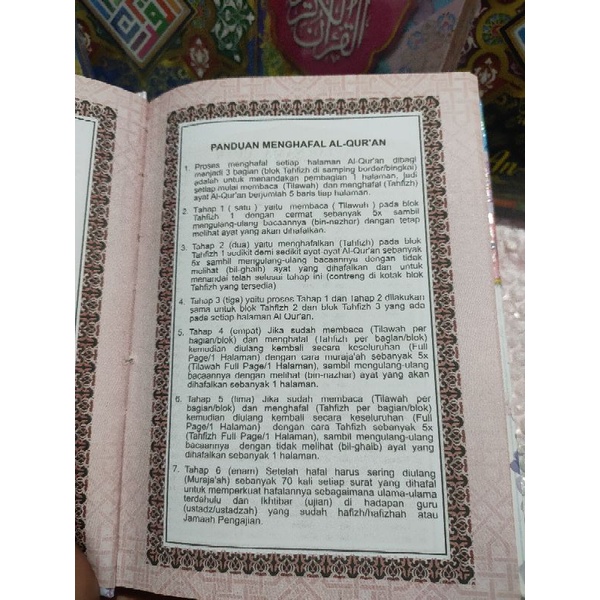 PANDUAN MENGHAFAL AL-QUR'AN
1. Proses menghafal setiap halaman Al-Qur'an dibagi
menjadi 3 bagian (blok Tahfizh di samping border/bingkai)
adalah untuk menandakan pembagian 1 halaman, jadi
setiap mulai membaca (Tilawah) dan menghafal (Tahfizh)
ayat Al-Qur'an berjumlah 5 baris tiap halaman.
2. Tahap 1 ( satu ) yaitu membaca ( Tilawah ) pada blok
Tahfizh 1 dengan cermat sebanyak 5x sambil
mengulang-ulang bacaannya (bin-nazhar) dengan tetap
melihat ayat yang akan dihafalkan.
3. Tahap 2 (dua) yaitu menghafalkan (Tahfizh) pada blok
Tahfizh 1 sedikit demi sedikit ayat ayat Al-Qur'an sebanyak
5x sambil mengulang-ulang bacaannya dengan tidak
melihat (bil-ghaib) ayat yang dihafalkan dan untuk
menandai telah selesai tahap ini (contreng di kotak blok
Tahfizh yang tersedia)
4. Tahap 3 (tiga) yaitu proses Tahap 1 dan Tahap 2 dilakukan
sama untuk blok Tahfizh 2 dan blok Tahfizh 3 yang ada
pada setiap halaman Al Qur'an.
5. Tahap 4 (empat) Jika sudah membaca (Tilawah per
bagian/blok) dan menghafal (Tahfizh per bagian/blok)
kemudian diulang kembali secara keseluruhan (Full
Page/1 Halaman) dengan cara muraja'ah sebanyak 5x
(Tilawah Full Page/1 Halaman), sambil mengulang-ulang
bacaannya dengan melihat (bin-nazhar) ayat yang akan
dihafalkan sebanyak 1 halaman.
6. Tahap 5 (lima) Jika sudah membaca (Tilawah per
bagian/blok) dan menghafal (Tahfizh per bagian/blok)
kemudian diulang kembali secara keseluruhan (Full
Page/1 Halaman) dengan cara Tahfizh sebanyak 5x
(Tahfizh Full Page/1 Halaman), sambil mengulang-ulang
bacaannya dengan tidak melihat (bil-ghaib) ayat yang
dihafalkan sebanyak 1 halaman.
7. Tahap 6 (enam) Setelah hafal harus sering diulang
(Muraja'ah) sebanyak 70 kali setiap surat yang dihafal
untuk memperkuat hafalannya sebagaimana ulama-ulama
terdahulu dan Ikhtibar (ujian) di hadapan guru
(ustadz/ustadzah) yang sudah hafizh/hafizhah atau
Jamaah Pengajian.